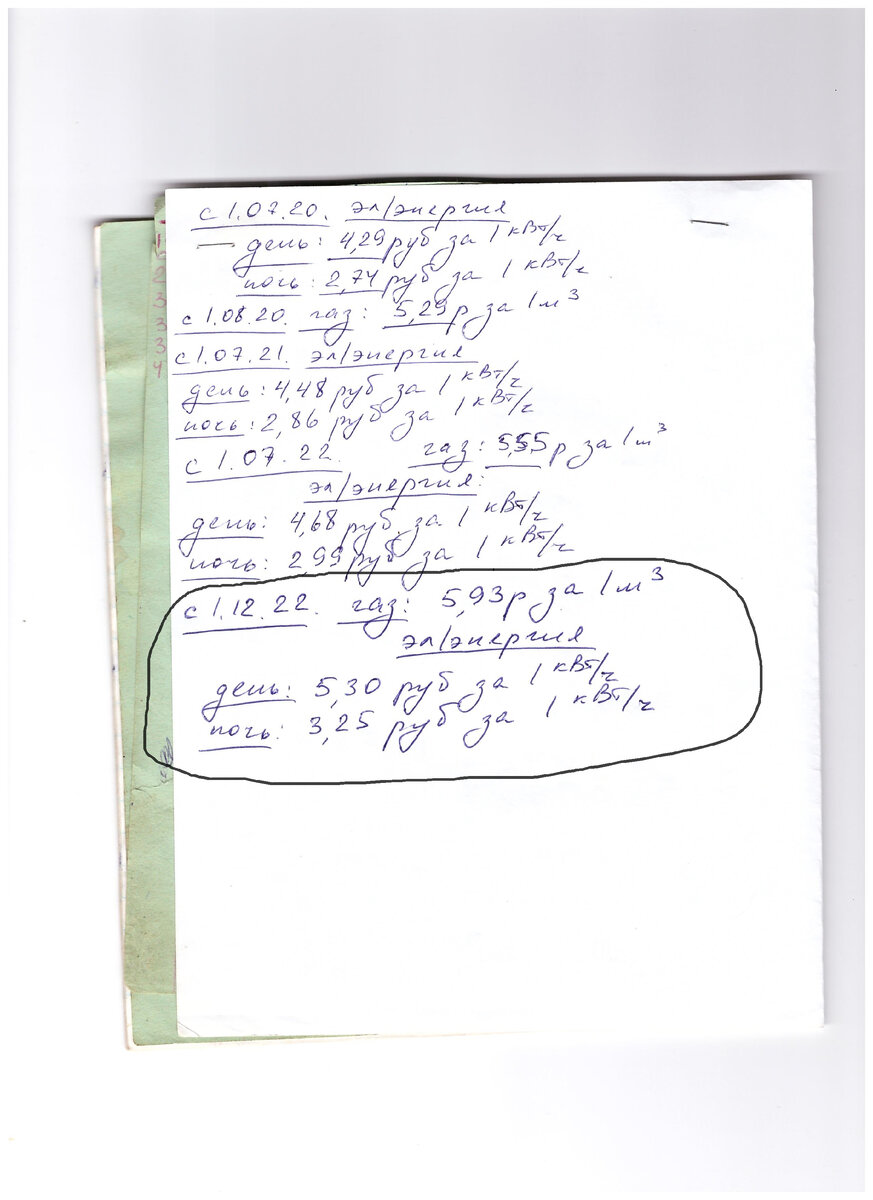 с 1.07.20. эл/энергия
— день: 4,29 руб за 1 кВт/ч
ночь: 2,74 руб за 1 кВт/ч
с 1.08.20. газ: 5,29 р за 1 м³
с 1.07.21. эл/энергия
день: 4,48 руб за 1 кВт/ч
ночь: 2,86 руб за 1 кВт/ч
с 1.07.22. газ: 5,55 р за 1 м³
эл/энергия:
день: 4,68 руб. за 1 кВт/ч
ночь: 2,99 руб за 1 кВт/ч
с 1.12.22. газ: 5,93 р за 1 м³
эл/энергия
день: 5,30 руб за 1 кВт/ч
ночь: 3,25 руб за 1 кВт/ч